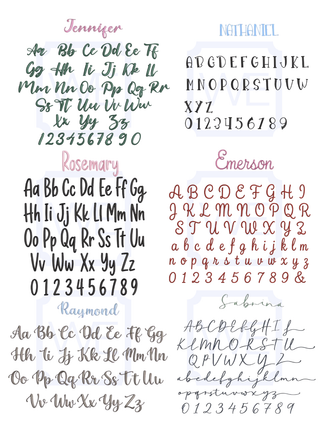 Jennifer
Aa Bb Cc Dd Ee Ff
Gg Hh Ii Jj Kk Ll
Mm Nn Oo Pp Qq Rr
Ss Tt Uu Vv Ww
Xx Yy Zz
1234567890
NATHANIEL
ABCDEFGHIJKL
MNOPQRSTUVW
XYZ
0123456789
Rosemary
Aa Bb Cc Dd Ee Ff Gg
Hh Ii Jj Kk Ll Mm Nn
Oo Pp Qq Rr Ss Tt Uu
Vv Ww Xx Yy Zz
0123456789
Emerson
ABCDEFGHI
JKLMNOPQR
STUVWXYZ
abcdefghijklm
nopqrstuvwxyz
0123456789&
Raymond
Aa Bb Cc Dd Ee Ff Gg
Hh Ii Jj Kk Ll Mm Nn
Oo Pp Qq Rr Ss Tt Uu
Vv Ww Xx Yy Zz
Sabrina
ABCDEFGHIJ
KLMNORSTU
QPVWXYZ
abcdefghijklmn
opqrstuvwxyz
0123456789